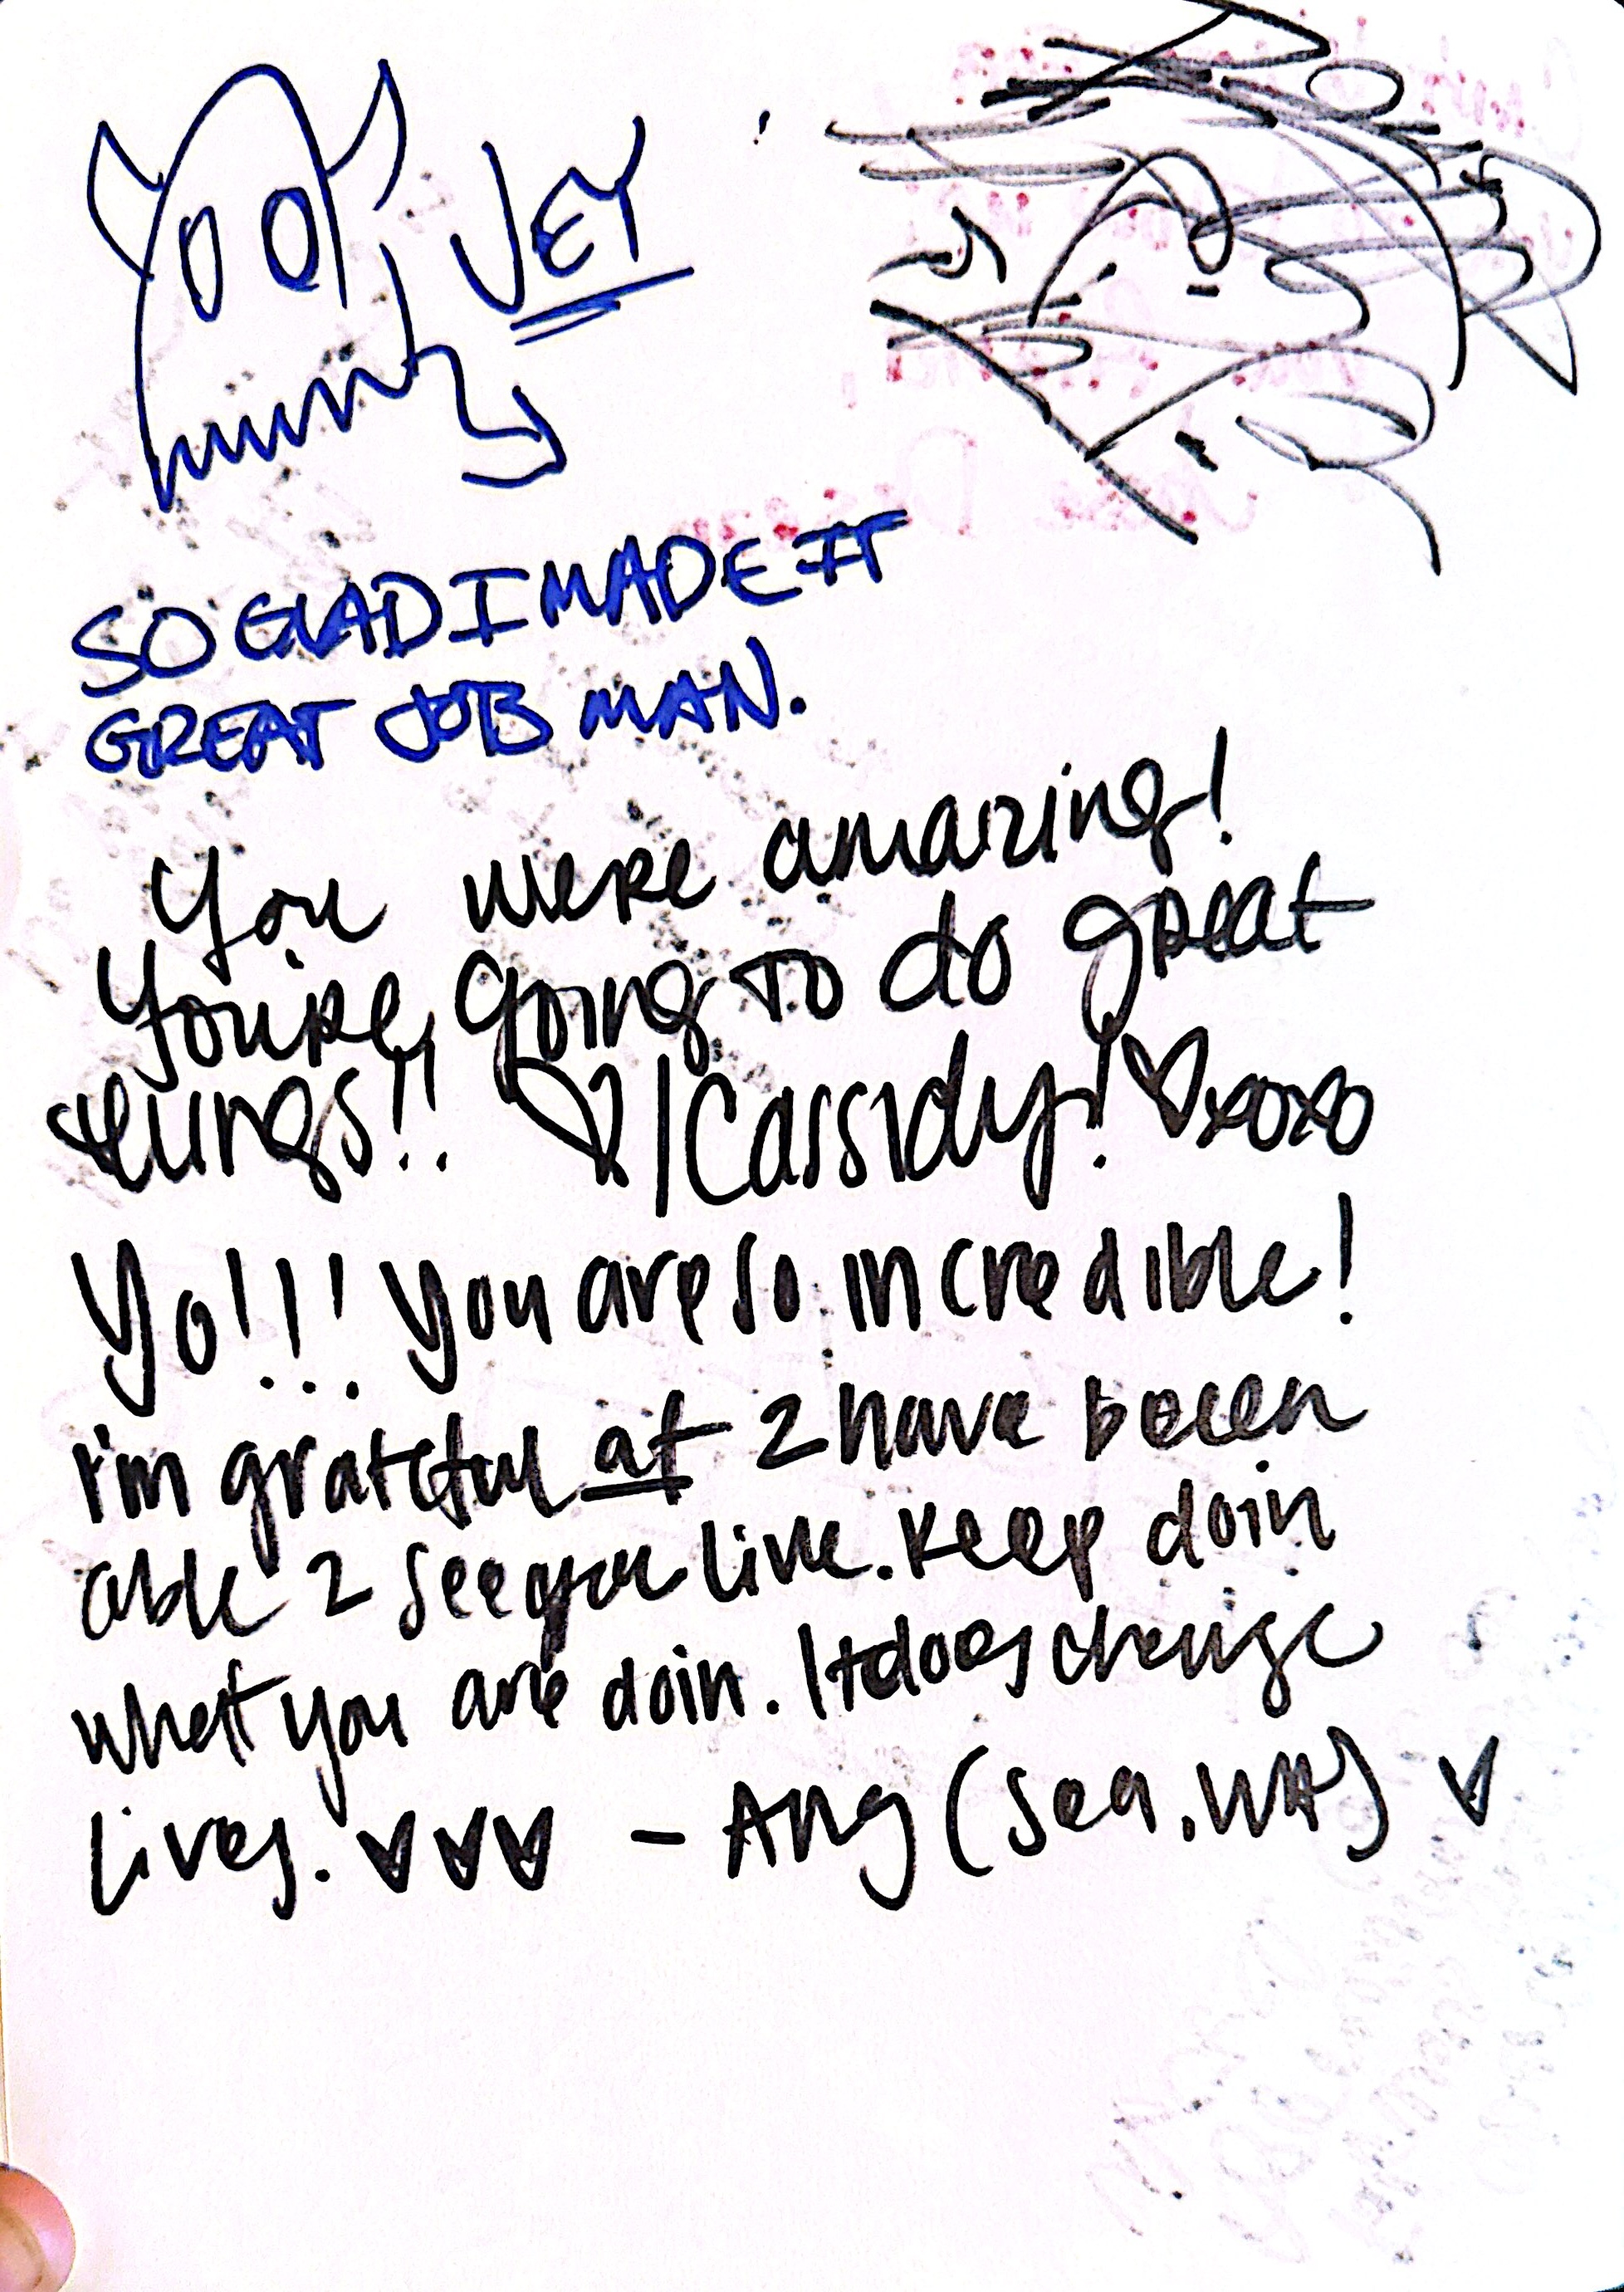 JEY
SO GLAD I MADE IT
GREAT JOB MAN.
You were amazing!
You're going to do great
things!! ♡ / Cassidy! ♡ xoxo
Yo!!! You are so incredible!
I'm grateful af 2 have been
able 2 see you live. Keep doin
what you are doin. It does change
lives. ♥♥♥ - Ang (Sea. WA) ♥